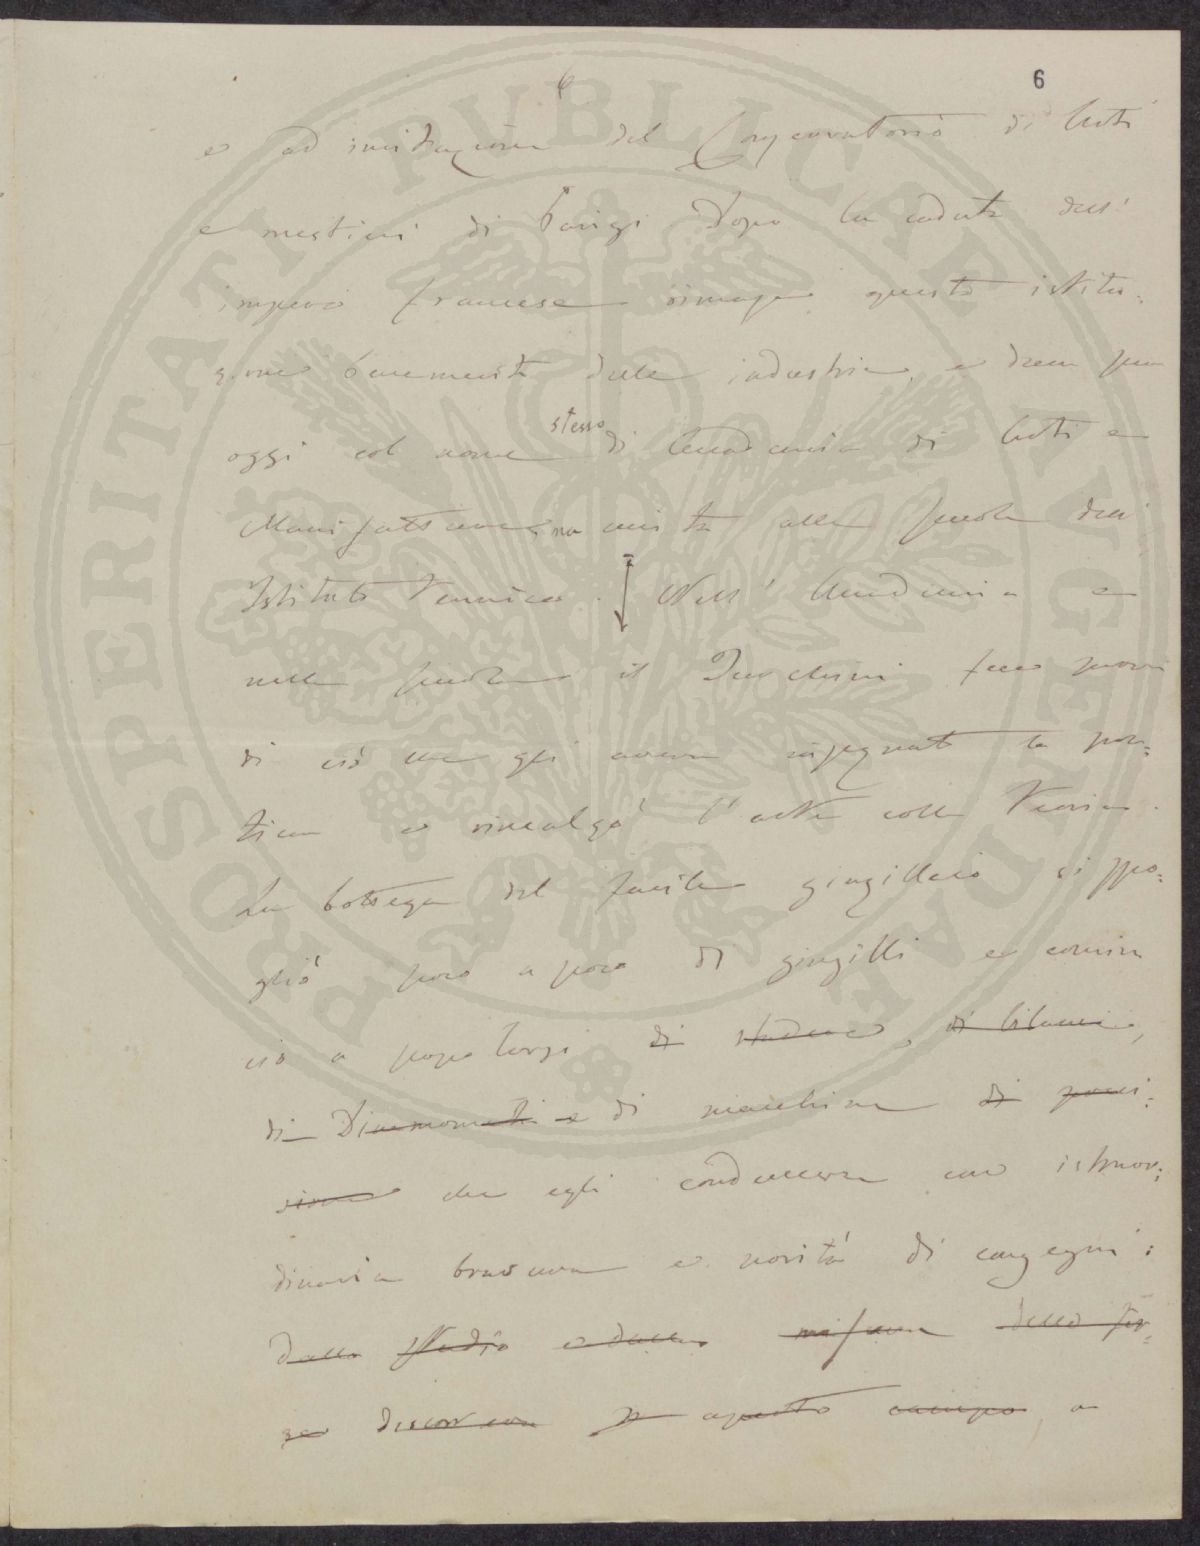 6
6
e ad imitazione del Conservatorio di Arti
e mestieri di Parigi. Dopo la caduta dell'
impero francese rimase questa istitu:
zione benemerita delle industrie, e dura pure
oggi col nome stesso di Accademia di Arti e
Manifatture, ma unita alla scuola dell'
Istituto Tecnico. Nell' Accademia e
nella scuola il Duchesni fece prova
di ciò che gli aveva insegnato la pra:
tica e rincalzò l'arte colla teoria.
La bottega del gingillaio si spo:
gliò poco a poco di gingilli e comin
ciò a popolarsi di stadere, di bilancie,
di Dinamometri e di macchine di preci:
sione che egli conduceva con istraor:
dinaria bravura e novità di congegni:
Dallo studio e dalla misura delle for:
ze discorreva in questo campo, a
PROSPERITATI PVBLICAE AVGENDAE